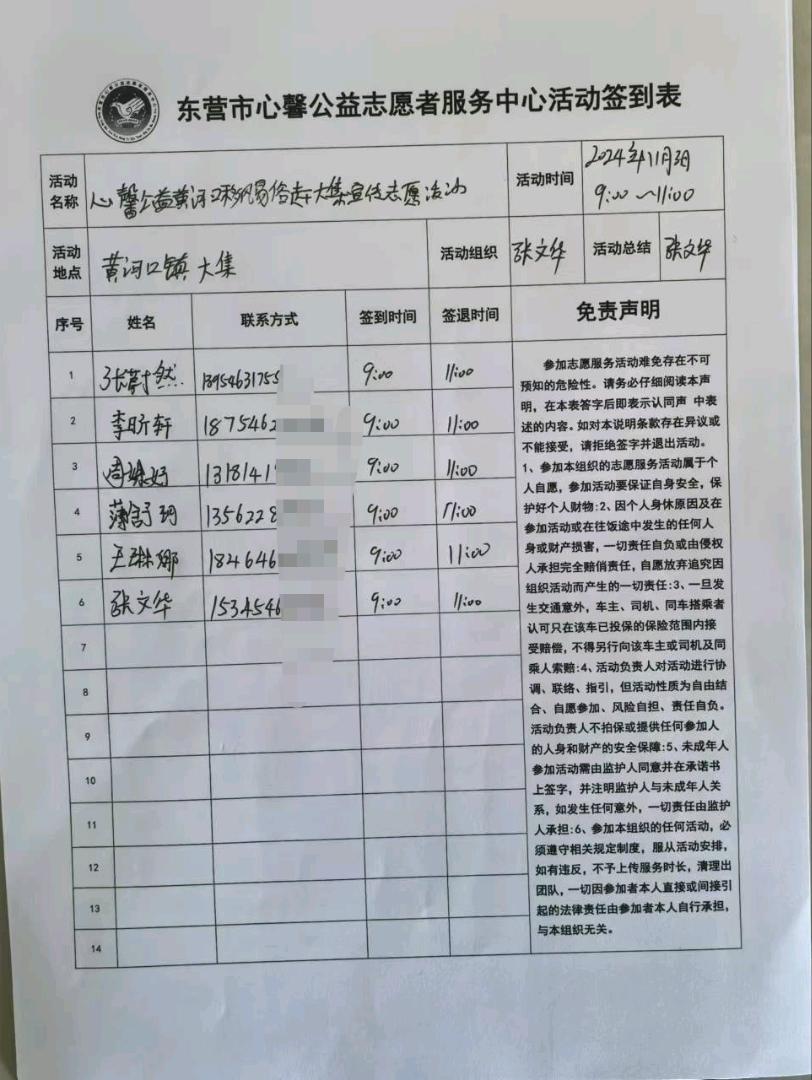 东营市心馨公益志愿者服务中心活动签到表
活动名称 心馨公益黄河口移风易俗赶大集宣传志愿活动 活动时间 2024年11月3日 9:00~11:00
活动地点 黄河口镇大集 活动组织 张文华 活动总结 张文华
序号 姓名 联系方式 签到时间 签退时间 免责声明
1 张蔚然 1395463175 9:00 11:00
2 李昕轩 1875462 9:00 11:00
3 周 好 1318141 9:00 11:00
4 薄舒珂 1356228 9:00 11:00
5 王琳娜 184646 9:00 11:00
6 张文华 1534546 9:00 11:00
7
8
9
10
11
12
13
14
参加志愿服务活动难免存在不可
预知的危险性。请务必仔细阅读本声
明，在本表签字后即表示认同声 中表
述的内容。如对本说明条款存在异议或
不能接受，请拒绝签字并退出活动。
1、参加本组织的志愿服务活动属于个
人自愿，参加活动要保证自身安全，保
护好个人财物:2、因个人身休原因及在
参加活动或在往饭途中发生的任何人
身或财产损害，一切责任自负或由侵权
人承担完全赔俏责任，自愿放弃追究因
组织活动而产生的一切责任:3、一旦发
生交通意外，车主、司机、同车搭乘者
认可只在该车已投保的保险范围内接
受赔偿，不得另行向该车主或司机及同
乘人索赔:4、活动负责人对活动进行协
调、联络、指引，但活动性质为自由结
合、自愿参加、风险自担、责任自负。
活动负责人不拍保或提供任何参加人
的人身和财产的安全保障:5、未成年人
参加活动需由监护人同意并在承诺书
上签字，并注明监护人与未成年人关
系，如发生任何意外，一切责任由监护
人承担:6、参加本组织的任何活动，必
须遵守相关规定制度，服从活动安排，
如有违反，不予上传服务时长，清理出
团队，一切因参加者本人直接或间接引
起的法律责任由参加者本人自行承担，
与本组织无关。